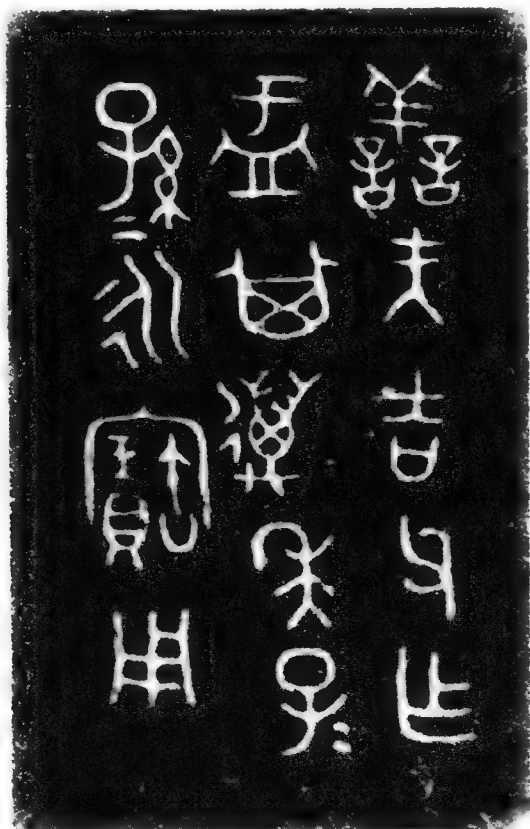 譱夫吉父乍
盂其邁年子=
孫=永寶用